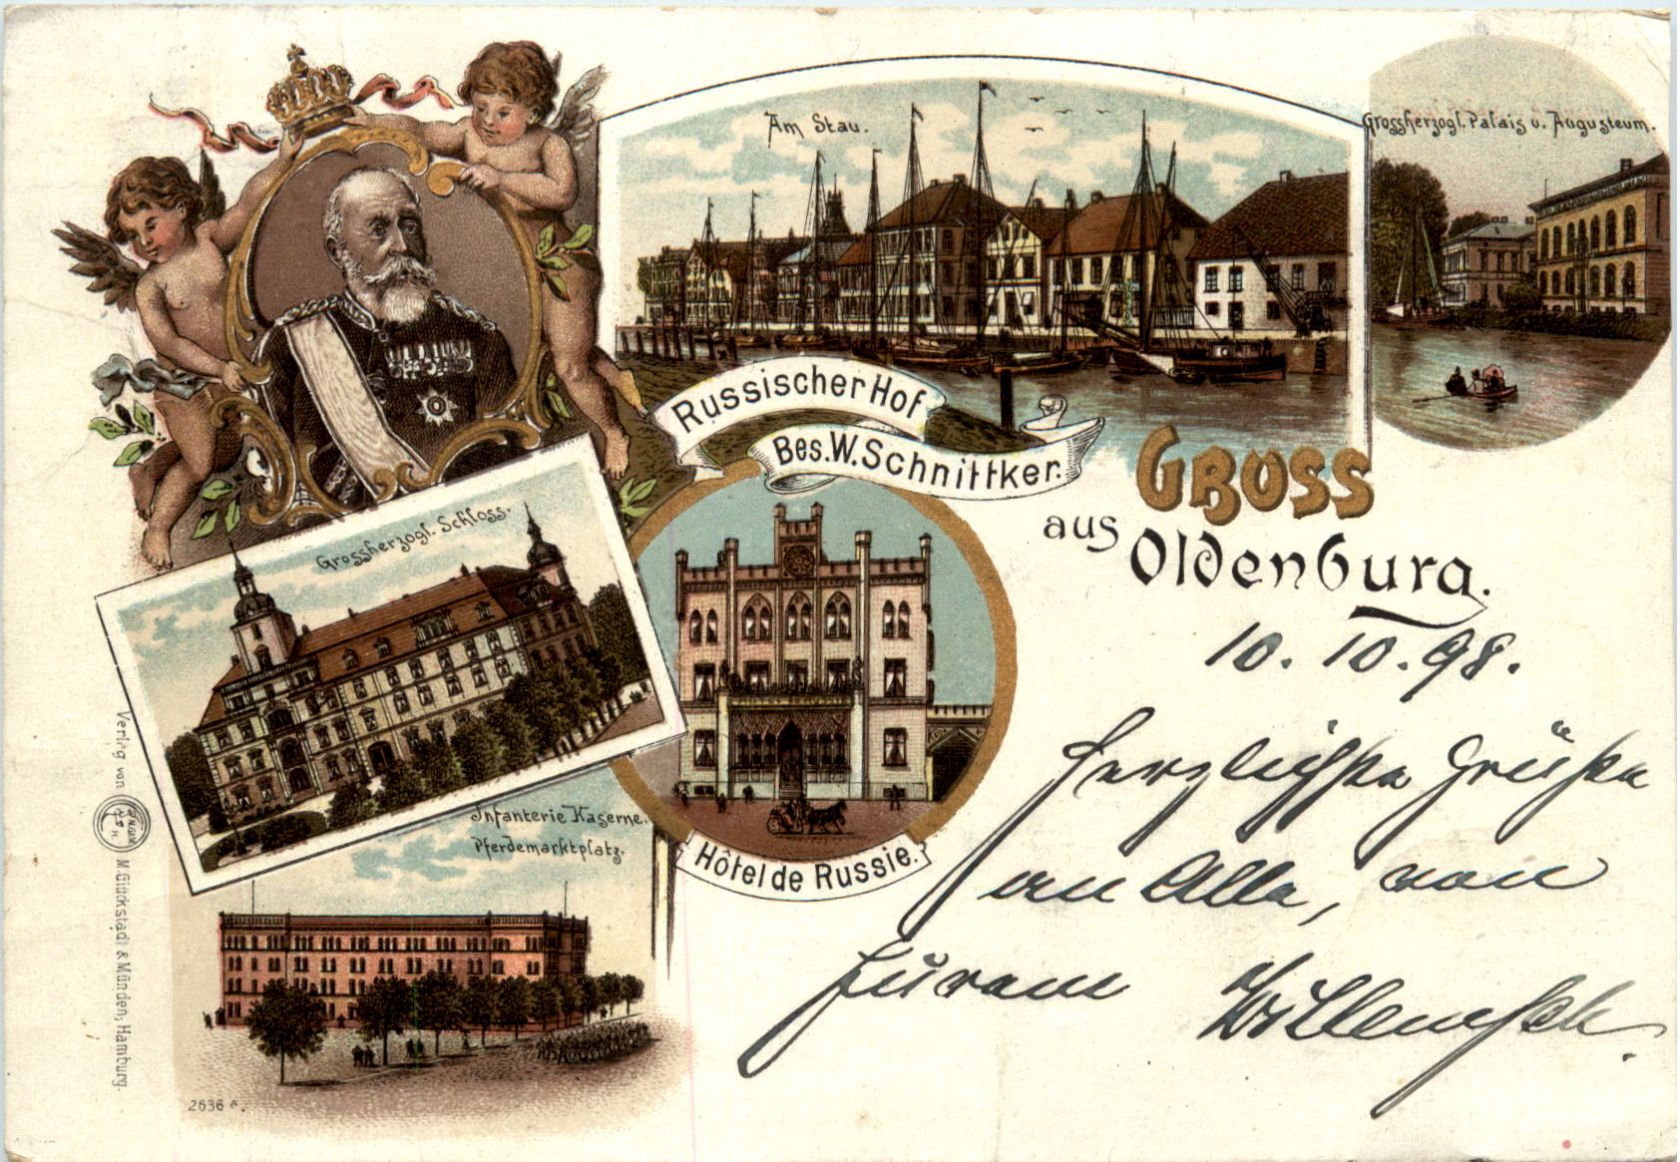 Am Stau.
Grossherzogl. Palais u. Augusteum.
Russischer Hof
Bes. W. Schnittker.
Gruss
aus Oldenburg.
Grossherzogl. Schloss.
Hôtel de Russie.
Infanterie Kaserne.
Pferdemarktplatz.
10. 10. 98.
Herzlichste Grüße
an Alle, von
Eurem
Verlag von
M. Glückstadt & Münden, Hamburg.
2636 A.